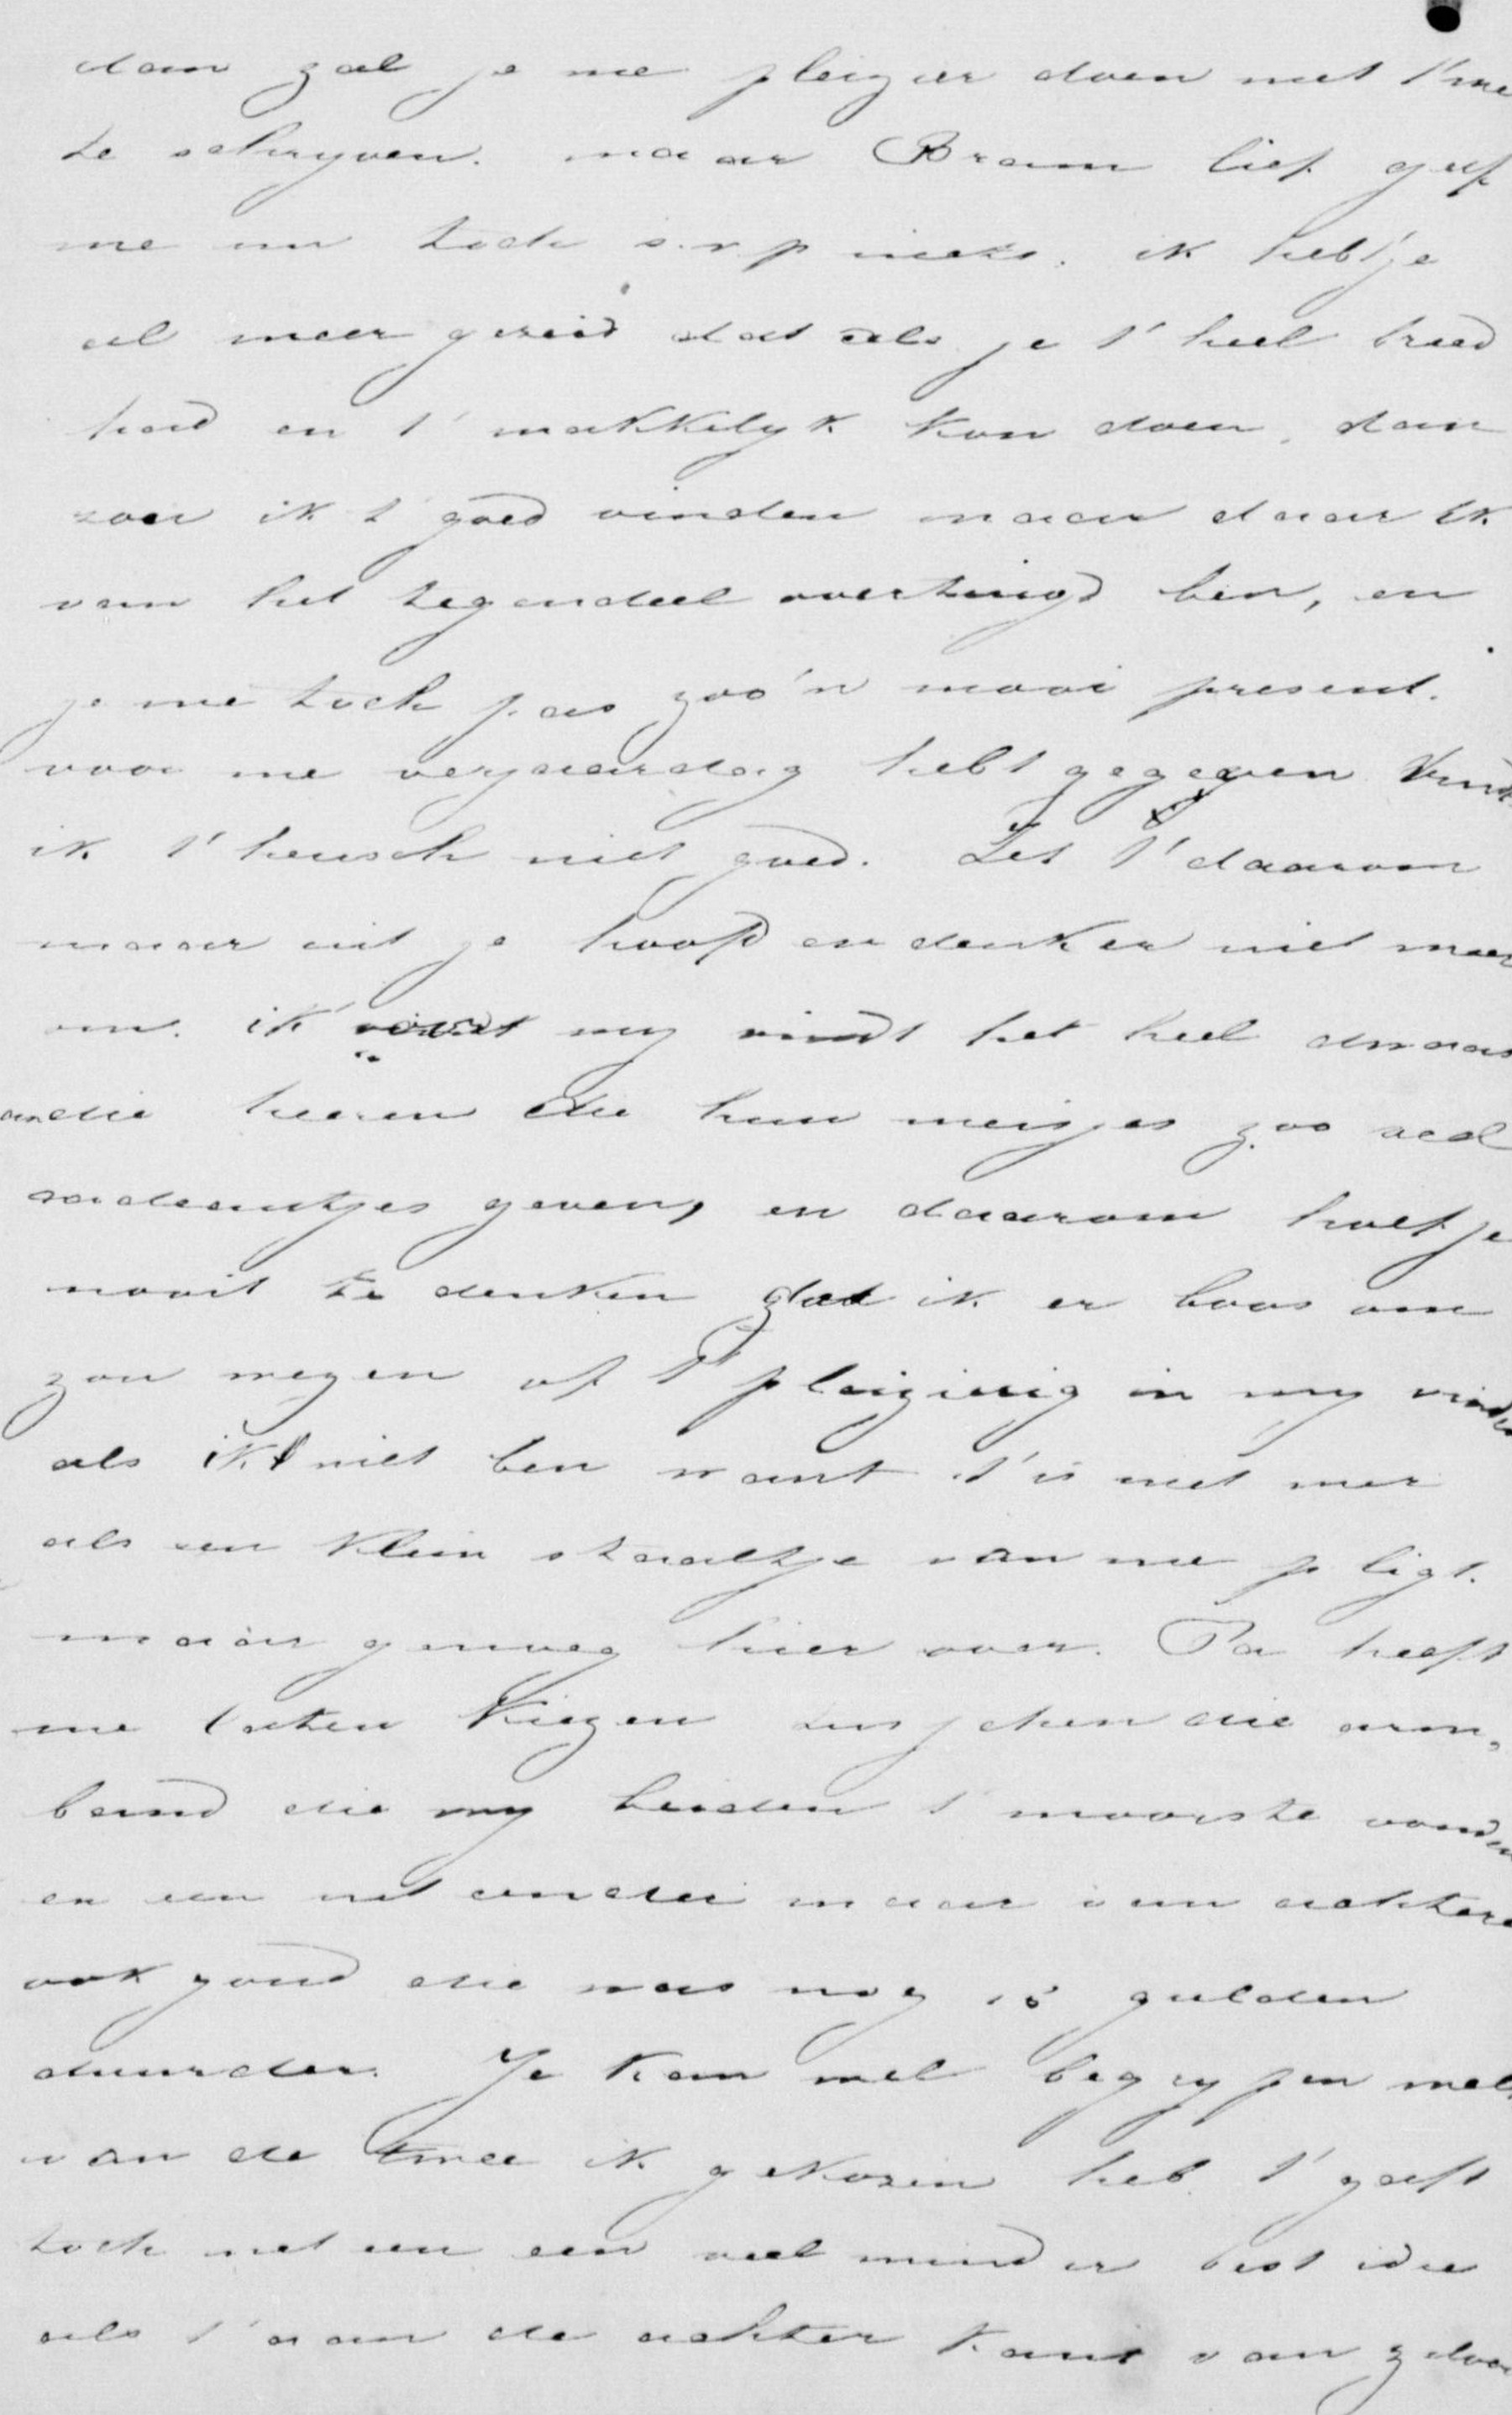 dan zal je me pleizier doen met t' me
te schryven. maar Bram lief geef
me nu toch s.v.p niets. ik heb t' je
al meer gezeid dat als je t' heel breed
had en t' makkelyk kon doen, dan
zou ik t' goed vinden maar daar ik
van het tegendeel overtuigd ben, en
je me toch pas zoo'n mooi present.
voor me verjaardag hebt gegeven vind
ik t' heusch niet goed. Zet t' daarom
maar uit je hoofd en denk er niet meer
om. ik my vindt het heel dwaas
die heeren die hun meisjes zoo veel
cadeautjes geven, en daarom hoef je
nooit te denken dat ik er boos om
zou wezen of t' pleizierig in my vinden
als ik t niet ben want t' is niet meer
als een klein staaltje van me pligt.
maar genoeg hier over. Pa heeft
me laten kiezen tusschen die arm,
band die wy beiden t' mooiste vonden
en een net andere maar van achteren
ook goud die was nog 15 gulden
duurder. Je kan wel begrypen welk
van de twee ik gekozen heb t' geeft
toch net een een veel minder best idee
als t' aan de achter kant van zilver